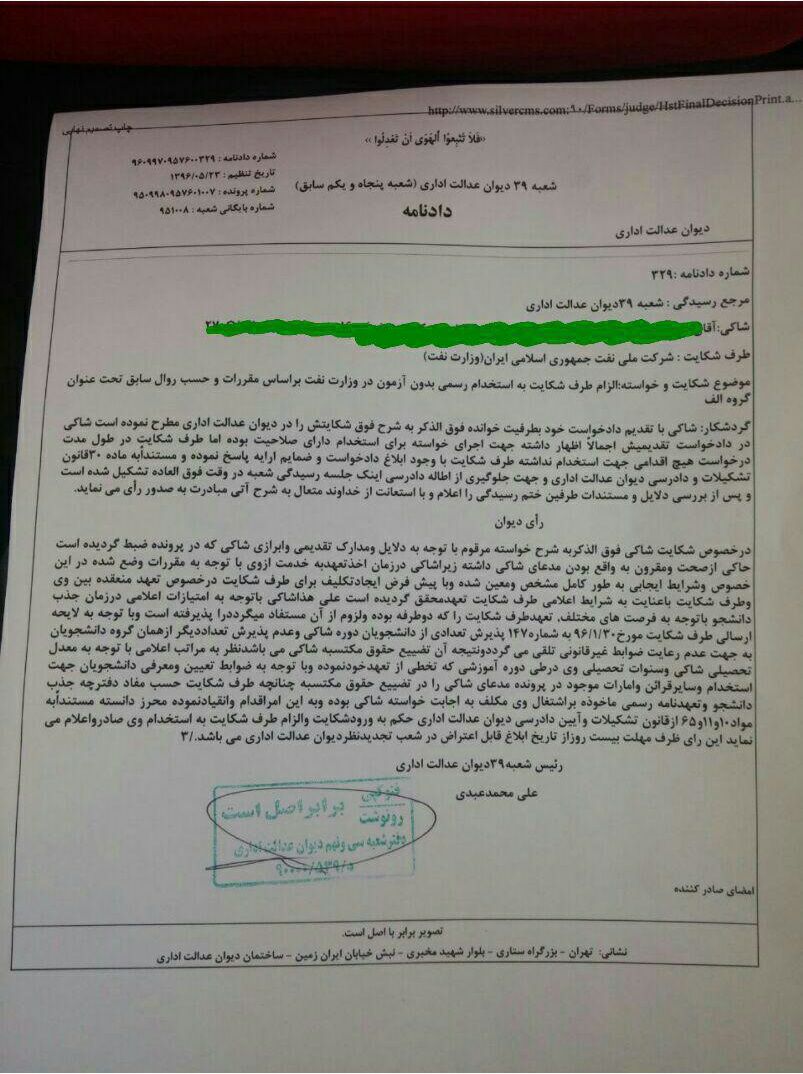 http://www.silvercms.com:90/Forms/judge/HstFinalDecisionPrint.a...
چاپ تصمیم نهایی
«فَلاَ تَتَّبِعوُا اْلهَوَی اَنْ تَعْدِلُوا»
شماره دادنامه : ۹۶۰۹۹۷۰۹۵۷۶۰۰۳۲۹
تاریخ تنظیم : ۱۳۹۶/۰۵/۲۳
شماره پرونده : ۹۵۰۹۹۸۰۹۵۷۶۰۱۰۰۷
شماره بایگانی شعبه : ۹۵۱۰۰۸
شعبه ۳۹ دیوان عدالت اداری (شعبه پنجاه و یکم سابق)
دادنامه
دیوان عدالت اداری
شماره دادنامه :۳۲۹
مرجع رسیدگی : شعبه ۳۹دیوان عدالت اداری
شاکی:آقا
طرف شکایت : شرکت ملی نفت جمهوری اسلامی ایران(وزارت نفت)
موضوع شکایت و خواسته:الزام طرف شکایت به استخدام رسمی بدون آزمون در وزارت نفت براساس مقررات و حسب روال سابق تحت عنوان
گروه الف
گردشکار: شاکی با تقدیم دادخواست خود بطرفیت خوانده فوق الذکر به شرح فوق شکایتش را در دیوان عدالت اداری مطرح نموده است شاکی
در دادخواست تقدیمیش اجمالاً اظهار داشته جهت اجرای خواسته برای استخدام دارای صلاحیت بوده اما طرف شکایت در طول مدت
درخواست هیچ اقدامی جهت استخدام نداشته طرف شکایت با وجود ابلاغ دادخواست و ضمایم ارایه پاسخ نموده و مستندآبه ماده ۳۰قانون
تشکیلات و دادرسی دیوان عدالت اداری و جهت جلوگیری از اطاله دادرسی اینک جلسه رسیدگی شعبه در وقت فوق العاده تشکیل شده است
و پس از بررسی دلایل و مستندات طرفین ختم رسیدگی را اعلام و با استعانت از خداوند متعال به شرح آتی مبادرت به صدور رأی می نماید.
رأی دیوان
درخصوص شکایت شاکی فوق الذکربه شرح خواسته مرقوم با توجه به دلایل ومدارک تقدیمی وابرازی شاکی که در پرونده ضبط گردیده است
حاکی ازصحت ومقرون به واقع بودن مدعای شاکی داشته زیراشاکی درزمان اخذتعهدبه خدمت ازوی با توجه به مقررات وضع شده در این
خصوص وشرایط ایجابی به طور کامل مشخص ومعین شده وبا پیش فرض ایجادتکلیف برای طرف شکایت درخصوص تعهد منعقده بین وی
وطرف شکایت باعنایت به شرایط اعلامی طرف شکایت تعهدمحقق گردیده است علی هذاشاکی باتوجه به امتیازات اعلامی درزمان جذب
دانشجو باتوجه به فرصت های مختلف, تعهدطرف شکایت را که دوطرفه بوده ولزوم از آن مستفاد میگرددرا پذیرفته است وبا توجه به لایحه
ارسالی طرف شکایت مورخ۹۶/۱/۳۰ به شماره۱۴۷ پذیرش تعدادی از دانشجویان دوره شاکی وعدم پذیرش تعداددیگر ازهمان گروه دانشجویان
به جهت عدم رعایت ضوابط غیرقانونی تلقی می گرددونتیجه آن تضییع حقوق مکتسبه شاکی می باشدنظر به مراتب اعلامی با توجه به معدل
تحصیلی شاکی وسنوات تحصیلی وی درطی دوره آموزشی که تخطی از تعهدخودنموده وبا توجه به ضوابط تعیین ومعرفی دانشجویان جهت
استخدام وسایرقرائن وامارات موجود در پرونده مدعای شاکی را در تضییع حقوق مکتسبه چنانچه طرف شکایت حسب مفاد دفترچه جذب
دانشجو وتعهدنامه رسمی ماخوذه براشتغال وی مکلف به اجابت خواسته شاکی بوده وبه این امراقدام وانقیادنموده محرز دانسته مستندآبه
مواد۱۰و۱۱و۶۵ ازقانون تشکیلات وآیین دادرسی دیوان عدالت اداری حکم به ورودشکایت والزام طرف شکایت به استخدام وی صادرواعلام می
نماید این رای ظرف مهلت بیست روزاز تاریخ ابلاغ قابل اعتراض در شعب تجدیدنظردیوان عدالت اداری می باشد./۳
رئیس شعبه۳۹دیوان عدالت اداری
علی محمدعبدی
فتوکپی
رونوشت
برابر اصل است
دفتر شعبه سی ونهم دیوان عدالت اداری
امضای صادر کننده
تصویر برابر با اصل است.
نشانی: تهران - بزرگراه ستاری - بلوار شهید مخبری - نبش خیابان ایران زمین - ساختمان دیوان عدالت اداری